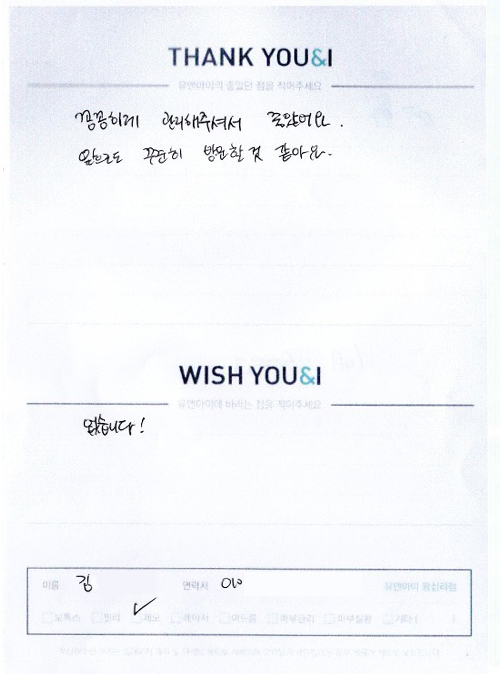 THANK YOU&I
유앤아이의 좋았던 점을 적어주세요
꼼꼼하게 관리해주셔서 좋았어요.
앞으로도 꾸준히 방문할 것 같아요.
WISH YOU&I
유앤아이에 바라는 점을 적어주세요
없습니다!
이름 김 연락처 010 유앤아이 왕십리점
보톡스 필러 제모 레이저 여드름 피부관리 피부질환 기타 ( )